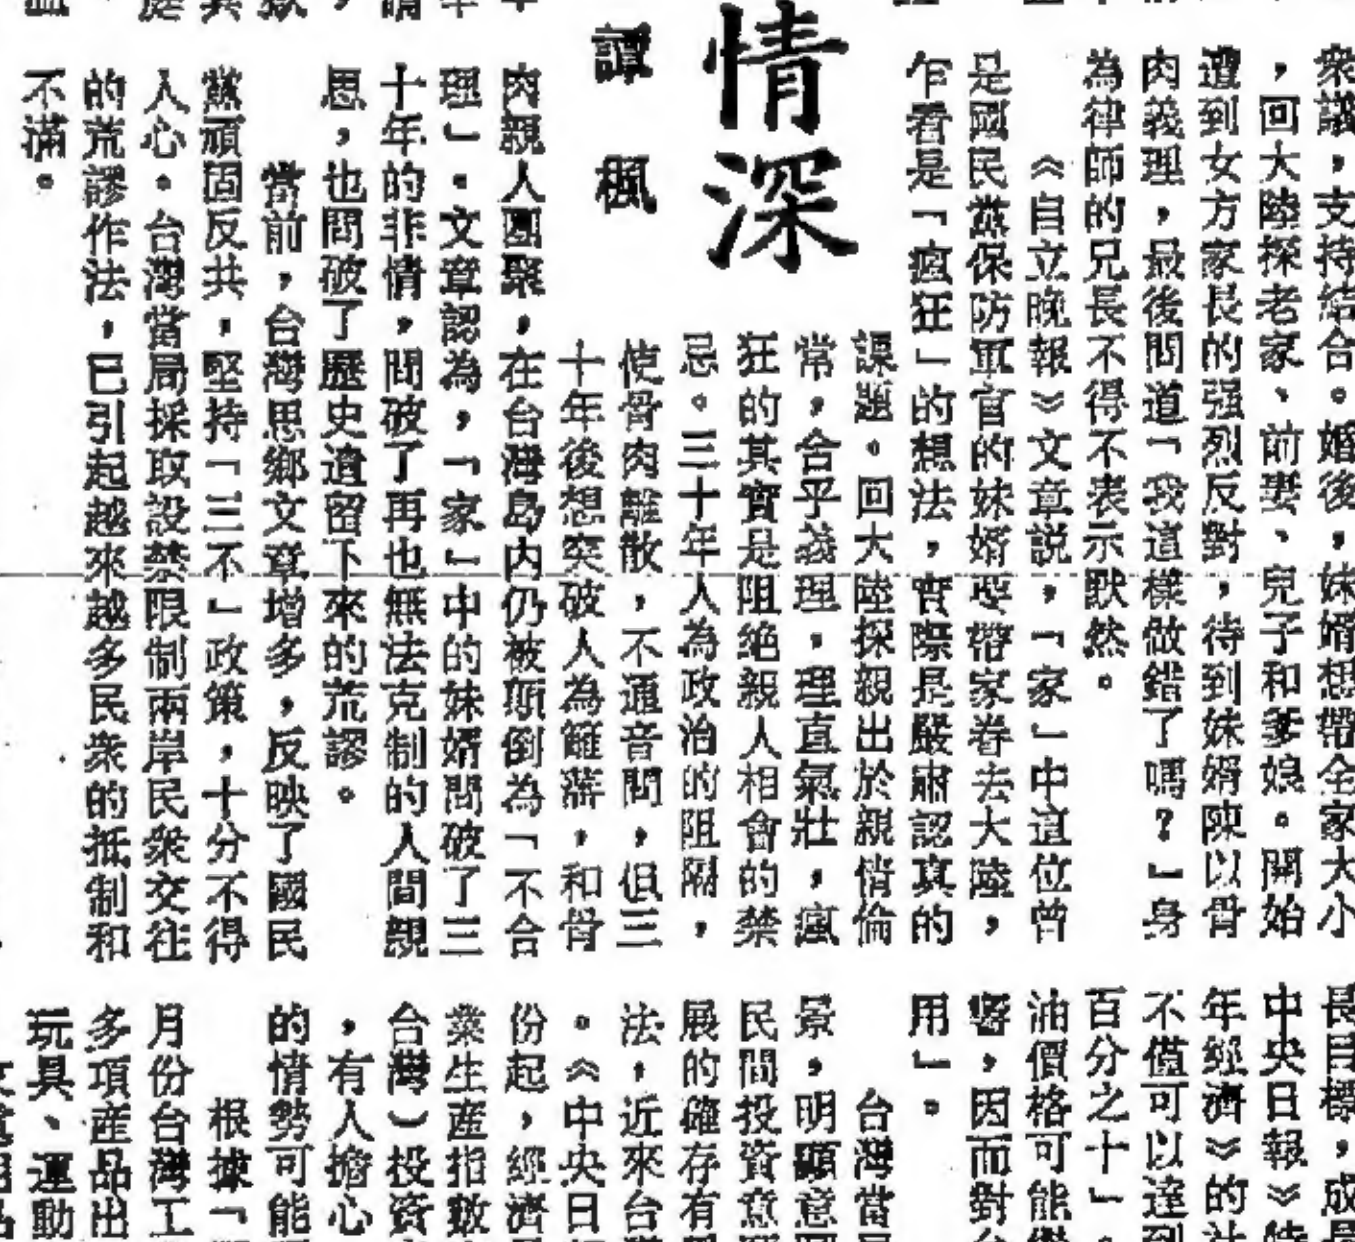 情深
譚楓
衆議，支持結合。婚後，妹婿想帶全家大小
，回大陸探老家、前妻、兒子和爹娘。開始
遭到女方家長的强烈反對，待到妹婿陳以骨
肉義理，最後問道「我這樣做錯了嗎？」身
為律師的兄長不得不表示默然。
《自立晚報》文章説，「家」中這位曾
是國民黨保防軍官的妹婿要帶家眷去大陸，
乍看是「瘋狂」的想法，實際是嚴肅認真的
課題。回大陸探親出於親情倫
常，合乎義理，理直氣壯，瘋
狂的其實是阻絶親人相會的禁
忌。三十年人為政治的阻隔，
使骨肉離散，不通音問，但三
十年後想突破人為籬藩，和骨
肉親人團聚，在台灣島内仍被顛倒為「不合
理」。文章認為，「家」中的妹婿問破了三
十年的非情，問破了再也無法克制的人間親
思，也問破了歷史遺留下來的荒謬。
當前，台灣思鄉文章增多，反映了國民
黨頑固反共，堅持「三不」政策，十分不得
人心。台灣當局採取設禁限制兩岸民衆交往
的荒謬作法，已引起越來越多民衆的抵制和
不滿。
長目標，成
中央日報》特
年經濟》的社
不僅可以達到
百分之十」，
油價格可能
響，因而對台
用」。
台灣當
景，明顯意
民間投資意
展的確存有
法，近來台
。《中央日
份起，經濟
業生産指數
台灣）投資
，有人擔心
的情勢可能
根據「
月份台灣工
多項産品出
玩具、運動